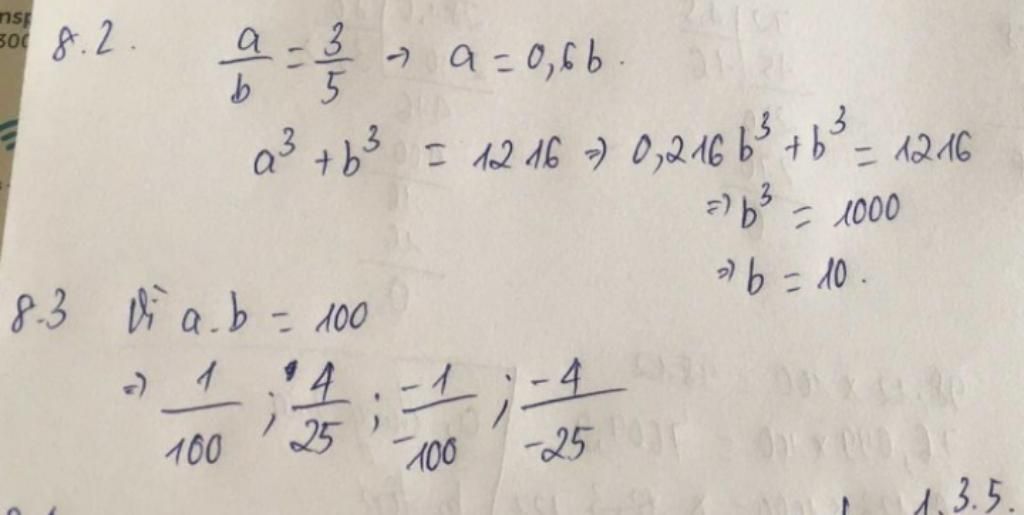 8.2. a/b = 3/5 → a = 0,6b.
a³ + b³ = 1216 => 0,216b³ + b³ = 1216
=> b³ = 1000
=> b = 10.
8.3 Vì a.b = 100
=> 1/100 ; 4/25 ; -1/-100 ; -4/-25
1.3.5.